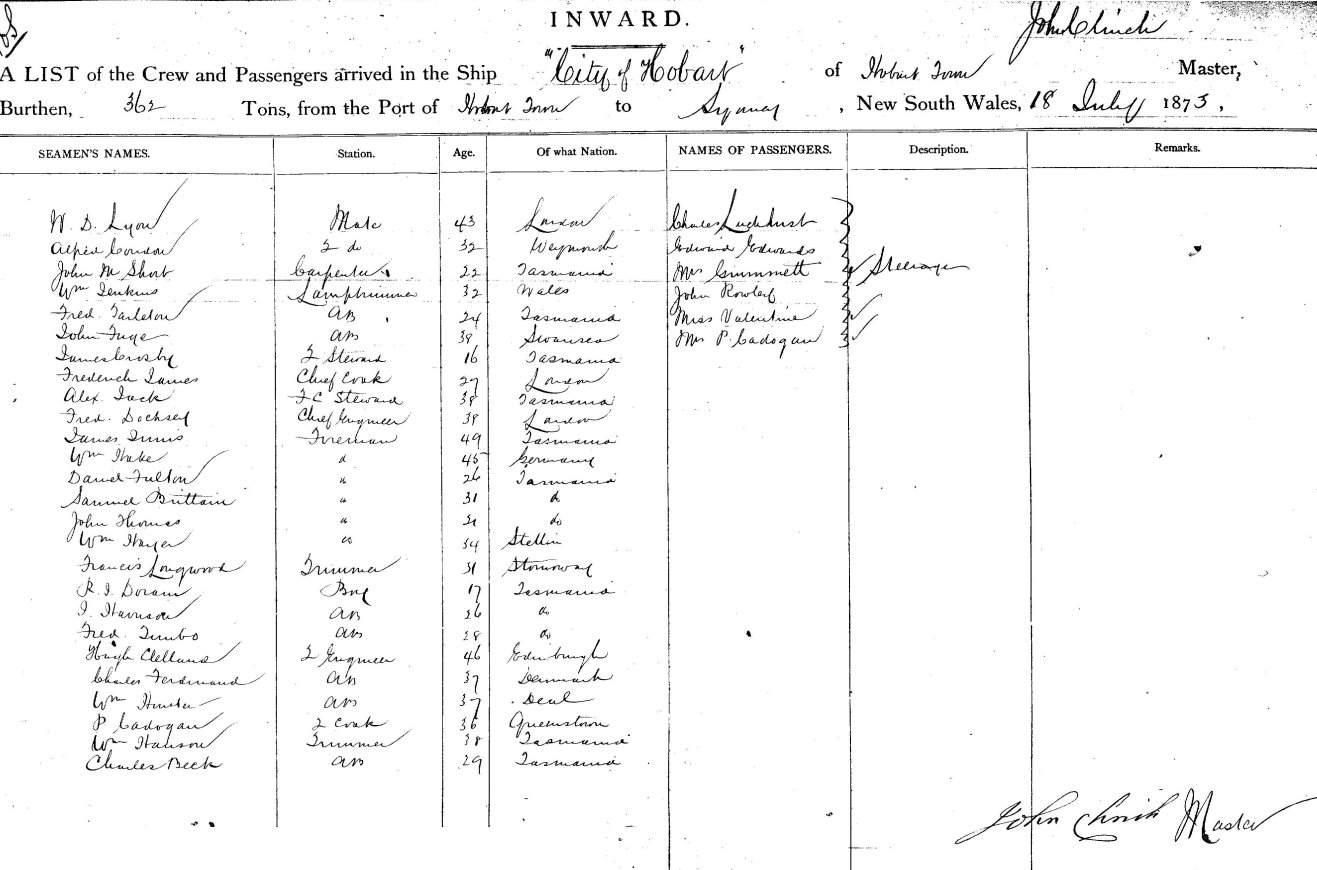 INWARD.
John Clinch
A LIST of the Crew and Passengers arrived in the Ship "City of Hobart" of Hobart Town Master,
Burthen, 362 Tons, from the Port of Hobart Town to Sydney, New South Wales, 18 July 1873,
SEAMEN'S NAMES. Station. Age. Of what Nation. NAMES OF PASSENGERS. Description. Remarks.
W. D. Lyon Mate 43 London Charles Luckhurst
Alfred Condon 2 do 32 Weymouth Edward Edwards
John M Short Carpenter 22 Tasmania Mrs Grummett Steerage
Wm Jenkins Lamptrimmer 32 Wales John Rowley
Fred. Tarleton AB 24 Tasmania Miss Valentine
John AB 38 Swansea Mrs P. Cadogan
James Crosby 2 Steward 16 Tasmania
Frederick James Chief Cook 27 London
Alex. Jack F C Steward 38 Tasmania
Fred. Chief Engineer 38 London
James Innis Fireman 49 Tasmania
Wm Hake " 45 Germany
Daniel Fulton " 26 Tasmania
Samuel Brittain " 31 do
John Thomas " do
Wm " 34 Stettin
Francis Longwood Trimmer 31 Stornoway
R. J. Doram Boy 17 Tasmania
J. Harrison AB 26 do
Fred. AB 28 do
Hugh Clelland 2 Engineer 46 Edinburgh
Charles Ferdinand AB 37 Denmark
Wm Hunter AB 37 Deal
P Cadogan 2 Cook 36 Queenstown
Wm Hanson Trimmer 38 Tasmania
Charles Beck AB 29 Tasmania
John Clinch Master